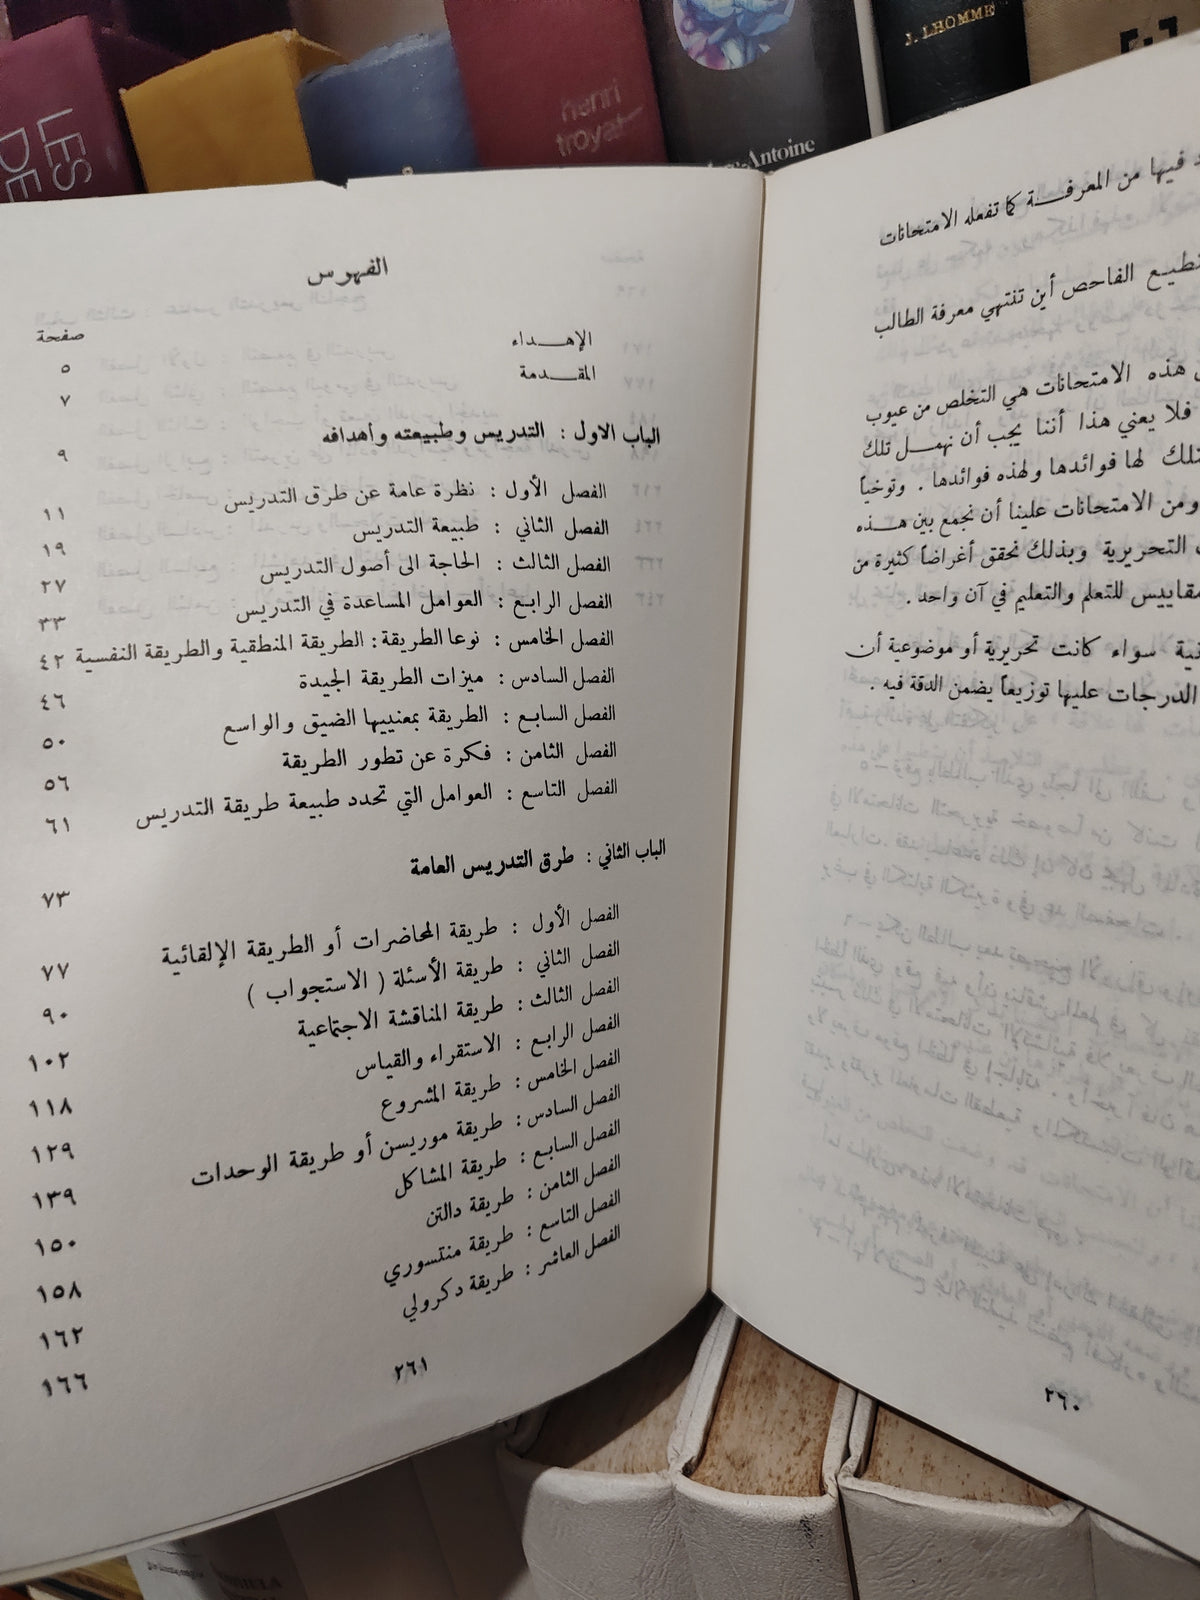 LES
DE
henri
troyat
-Antoine
J. LHOMME
فيها من المعرفة كما تفعله الامتحانات
الفاحص أين تنتهي معرفة الطالب
هذه الامتحانات هي التخلص من عيوب
فلا يعني هذا أننا يجب أن نهمل تلك
لها فوائدها ولهذه فوائدها . وتوخياً
ومن الامتحانات علينا أن نجمع بين هذه
التحريرية وبذلك نحقق أغراضاً كثيرة من
للتعلم والتعليم في آن واحد .
سواء كانت تحريرية أو موضوعية أن
الدرجات عليها توزيعاً يضمن الدقة فيه .
٢٦٠
الفهرس
صفحة
الإهداء ٥
المقدمة ٧
الباب الاول : التدريس وطبيعته وأهدافه ٩
الفصل الأول : نظرة عامة عن طرق التدريس ١١
الفصل الثاني : طبيعة التدريس ١٩
الفصل الثالث : الحاجة الى أصول التدريس ٢٧
الفصل الرابع : العوامل المساعدة في التدريس ٣٣
الفصل الخامس : نوعا الطريقة : الطريقة المنطقية والطريقة النفسية ٤٢
الفصل السادس : ميزات الطريقة الجيدة ٤٦
الفصل السابع : الطريقة بمعنييها الضيق والواسع ٥٠
الفصل الثامن : فكرة عن تطور الطريقة ٥٦
الفصل التاسع : العوامل التي تحدد طبيعة طريقة التدريس ٦١
الباب الثاني : طرق التدريس العامة ٧٣
الفصل الأول : طريقة المحاضرات أو الطريقة الإلقائية ٧٧
الفصل الثاني : طريقة الأسئلة ( الاستجواب ) ٩٠
الفصل الثالث : طريقة المناقشة الاجتماعية ١٠٢
الفصل الرابع : الاستقراء والقياس ١١٨
الفصل الخامس : طريقة المشروع ١٢٩
الفصل السادس : طريقة موريسن أو طريقة الوحدات ١٣٩
الفصل السابع : طريقة المشاكل ١٥٠
الفصل الثامن : طريقة دالتن ١٥٨
الفصل التاسع : طريقة منتسوري ١٦٢
الفصل العاشر : طريقة دكرولي ١٦٦
٢٦١